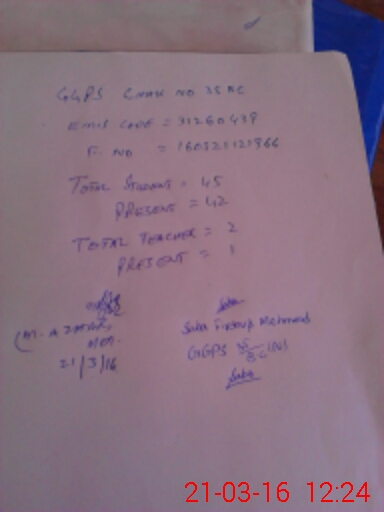 GGPS CHAK NO 35 AC
EMIS CODE = 31260439
F. NO = 160321121966
TOTAL STUDENT = 45
PRESENT = 42
TOTAL TEACHER = 2
PRESENT = 1
Saba
Saba Mehmood
GGPS
21/3/16
Saba
21-03-16 12:24